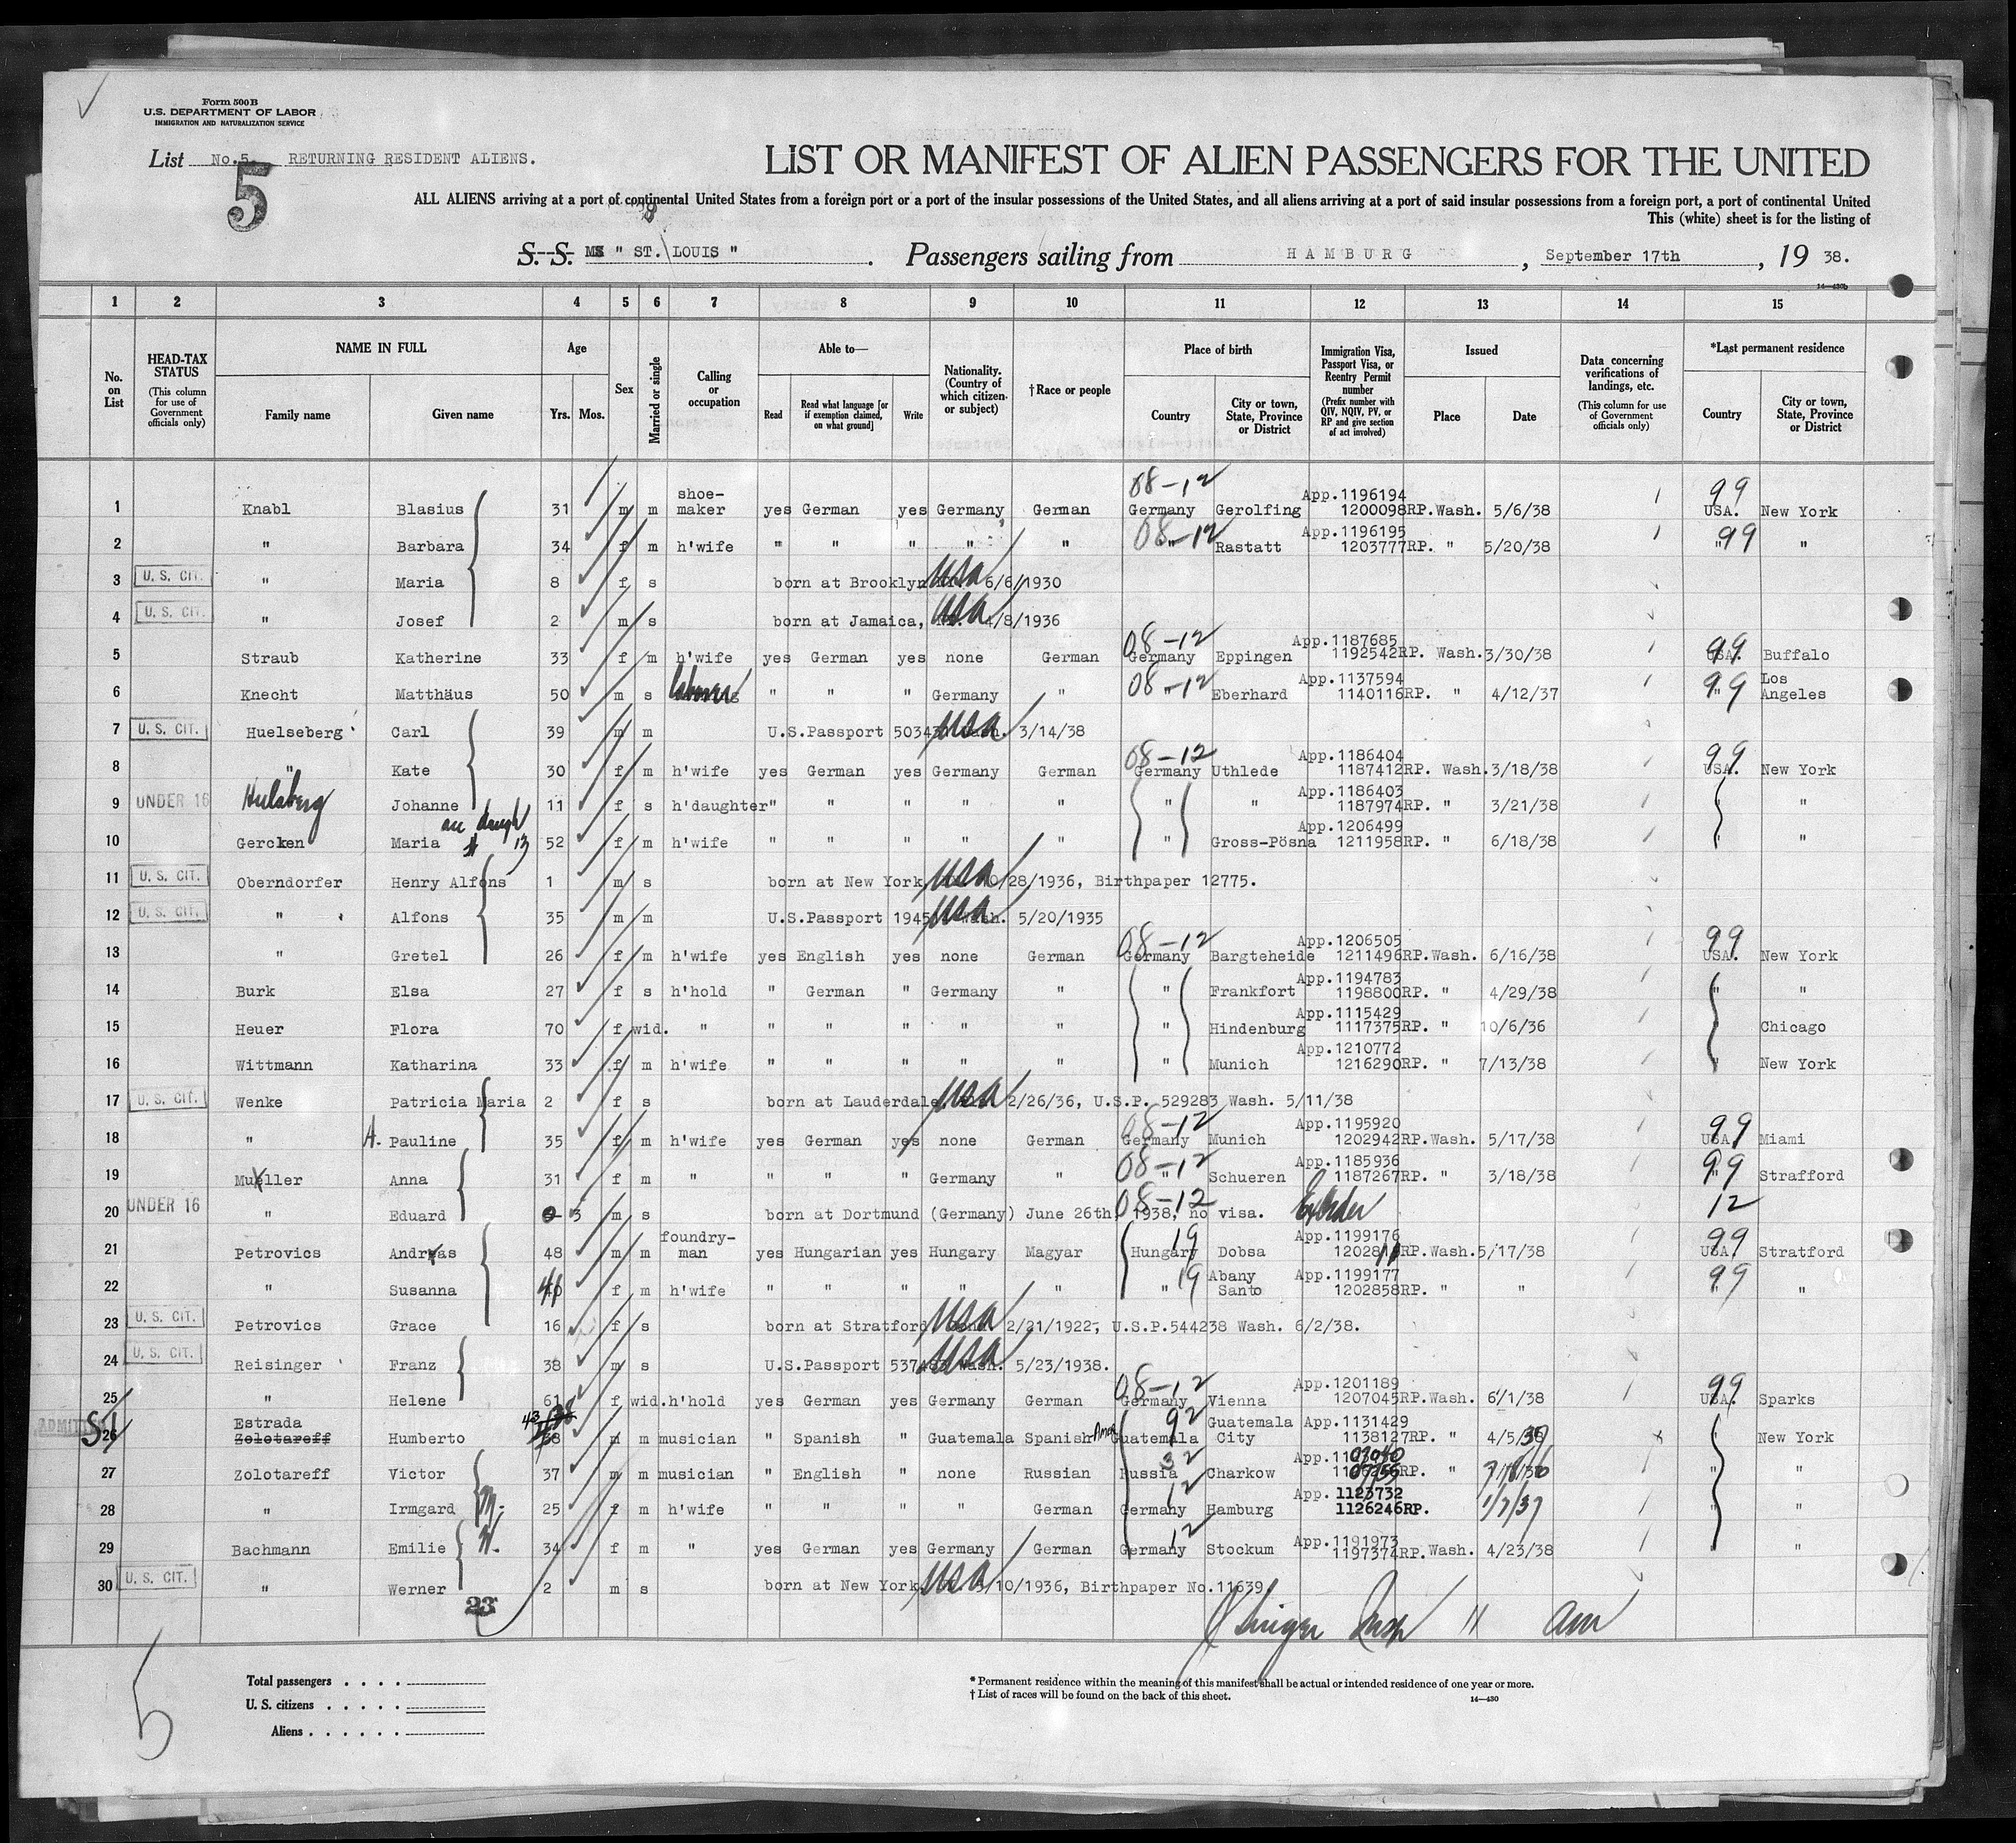 Form 500 B
U.S. DEPARTMENT OF LABOR
IMMIGRATION AND NATURALIZATION SERVICE
List No.5. RETURNING RESIDENT ALIENS.
5
LIST OR MANIFEST OF ALIEN PASSENGERS FOR THE UNITED
ALL ALIENS arriving at a port of continental United States from a foreign port or a port of the insular possessions of the United States, and all aliens arriving at a port of said insular possessions from a foreign port, a port of continental United
This (white) sheet is for the listing of
S. S. MS " ST. LOUIS " . Passengers sailing from HAMBURG , September 17th , 19 38.
14—430b
1 2 3 4 5 6 7 8 9 10 11 12 13 14 15
No. on List
HEAD-TAX STATUS (This column for use of Government officials only)
NAME IN FULL Family name Given name
Age Yrs. Mos.
Sex
Married or single
Calling or occupation
Able to— Read Read what language [or if exemption claimed, on what ground] Write
Nationality. (Country of which citizen or subject)
†Race or people
Place of birth Country City or town, State, Province or District
Immigration Visa, Passport Visa, or Reentry Permit number (Prefix number with QIV, NQIV, PV, or RP and give section of act involved)
Issued Place Date
Data concerning verifications of landings, etc. (This column for use of Government officials only)
*Last permanent residence Country City or town, State, Province or District
1 Knabl Blasius 31 m m shoe-maker yes German yes Germany German 08-12 Germany Gerolfing App.1196194 1200098RP. Wash. 5/6/38 99 USA. New York
2 " Barbara 34 f m h'wife " " " " " 08-12 " Rastatt App.1196195 1203777RP. " 5/20/38 99 " "
3 U. S. CIT. " Maria 8 f s born at Brooklyn USA 6/6/1930
4 U. S. CIT. " Josef 2 m s born at Jamaica, USA 4/8/1936
5 Straub Katherine 33 f m h'wife yes German yes none German 08-12 Germany Eppingen App.1187685 1192542RP. Wash. 3/30/38 99 USA. Buffalo
6 Knecht Matthäus 50 m s laborer " " " Germany " 08-12 " Eberhard App.1137594 1140116RP. " 4/12/37 99 " Los Angeles
7 U. S. CIT. Huelseberg Carl 39 m m U.S.Passport USA Wash. 3/14/38
8 " Kate 30 f m h'wife yes German yes Germany German 08-12 Germany Uthlede App.1186404 1187412RP. Wash. 3/18/38 99 USA. New York
9 UNDER 16 Hulsberg Johanne 11 f s h'daughter " " " " " " " App.1186403 1187974RP. " 3/21/38 " "
10 Gercken Maria 52 f m h'wife " " " " " " Gross-Pösna App.1206499 1211958RP. " 6/18/38 " "
11 U. S. CIT. Oberndorfer Henry Alfons 1 m s born at New York USA 10/28/1936, Birthpaper 12775.
12 U. S. CIT. " Alfons 35 m m U.S.Passport USA Wash. 5/20/1935
13 " Gretel 26 f m h'wife yes English yes none German 08-12 Germany Bargteheide App.1206505 1211496RP. Wash. 6/16/38 99 USA. New York
14 Burk Elsa 27 f s h'hold " German " Germany " " Frankfort App.1194783 1198800RP. " 4/29/38 " "
15 Heuer Flora 70 f wid. " " " " " " " Hindenburg App.1115429 1117375RP. " 10/6/36 " Chicago
16 Wittmann Katharina 33 f m h'wife " " " " " " Munich App.1210772 1216290RP. " 7/13/38 " New York
17 U. S. CIT. Wenke Patricia Maria 2 f s born at Lauderdale, USA 2/26/36, U.S.P. 529283 Wash. 5/11/38
18 " A. Pauline 35 f m h'wife yes German yes none German 08-12 Germany Munich App.1195920 1202942RP. Wash. 5/17/38 99 USA Miami
19 Mueller Anna 31 f m " " " " Germany " 08-12 " Schueren App.1185936 1187267RP. " 3/18/38 99 " Strafford
20 UNDER 16 " Eduard 0 3 m s born at Dortmund (Germany) June 26th, 1938, no visa. 08-12 12
21 Petrovics Andreas 48 m m foundry-man yes Hungarian yes Hungary Magyar 19 Hungary Dobsa App.1199176 RP. Wash. 5/17/38 99 USA Stratford
22 " Susanna 41 f m h'wife " " " " " 19 " Abany Santo App.1199177 1202858RP. " " 99 "
23 U. S. CIT. Petrovics Grace 16 f s born at Stratford USA 2/21/1922, U.S.P.544238 Wash. 6/2/38.
24 U. S. CIT. Reisinger Franz 38 m s U.S.Passport USA Wash. 5/23/1938.
25 " Helene 61 f wid. h'hold yes German yes Germany German 08-12 Germany Vienna App.1201189 1207045RP. Wash. 6/1/38 99 USA. Sparks
ADMITTED SI 26 Estrada Zolotareff Humberto 43 m m musician " Spanish " Guatemala Spanish Amer 92 Guatemala Guatemala City App.1131429 1138127RP. " 4/5/37 " New York
27 Zolotareff Victor 37 m m musician " English " none Russian 32 Russia Charkow RP. " " "
28 " Irmgard M. 25 f m h'wife " " " " German 12 Germany Hamburg App. 1123732 1126246RP. 1/7/37 " "
29 Bachmann Emilie W. 34 f m " yes German yes Germany German 12 Germany Stockum App.1191973 1197374RP. Wash. 4/23/38 " "
30 U. S. CIT. " Werner 2 m s born at New York, USA /10/1936, Birthpaper No.11639.
23
5
Total passengers . . . .
U. S. citizens . . . . .
Aliens . . . . . .
* Permanent residence within the meaning of this manifest shall be actual or intended residence of one year or more.
† List of races will be found on the back of this sheet.
14—430